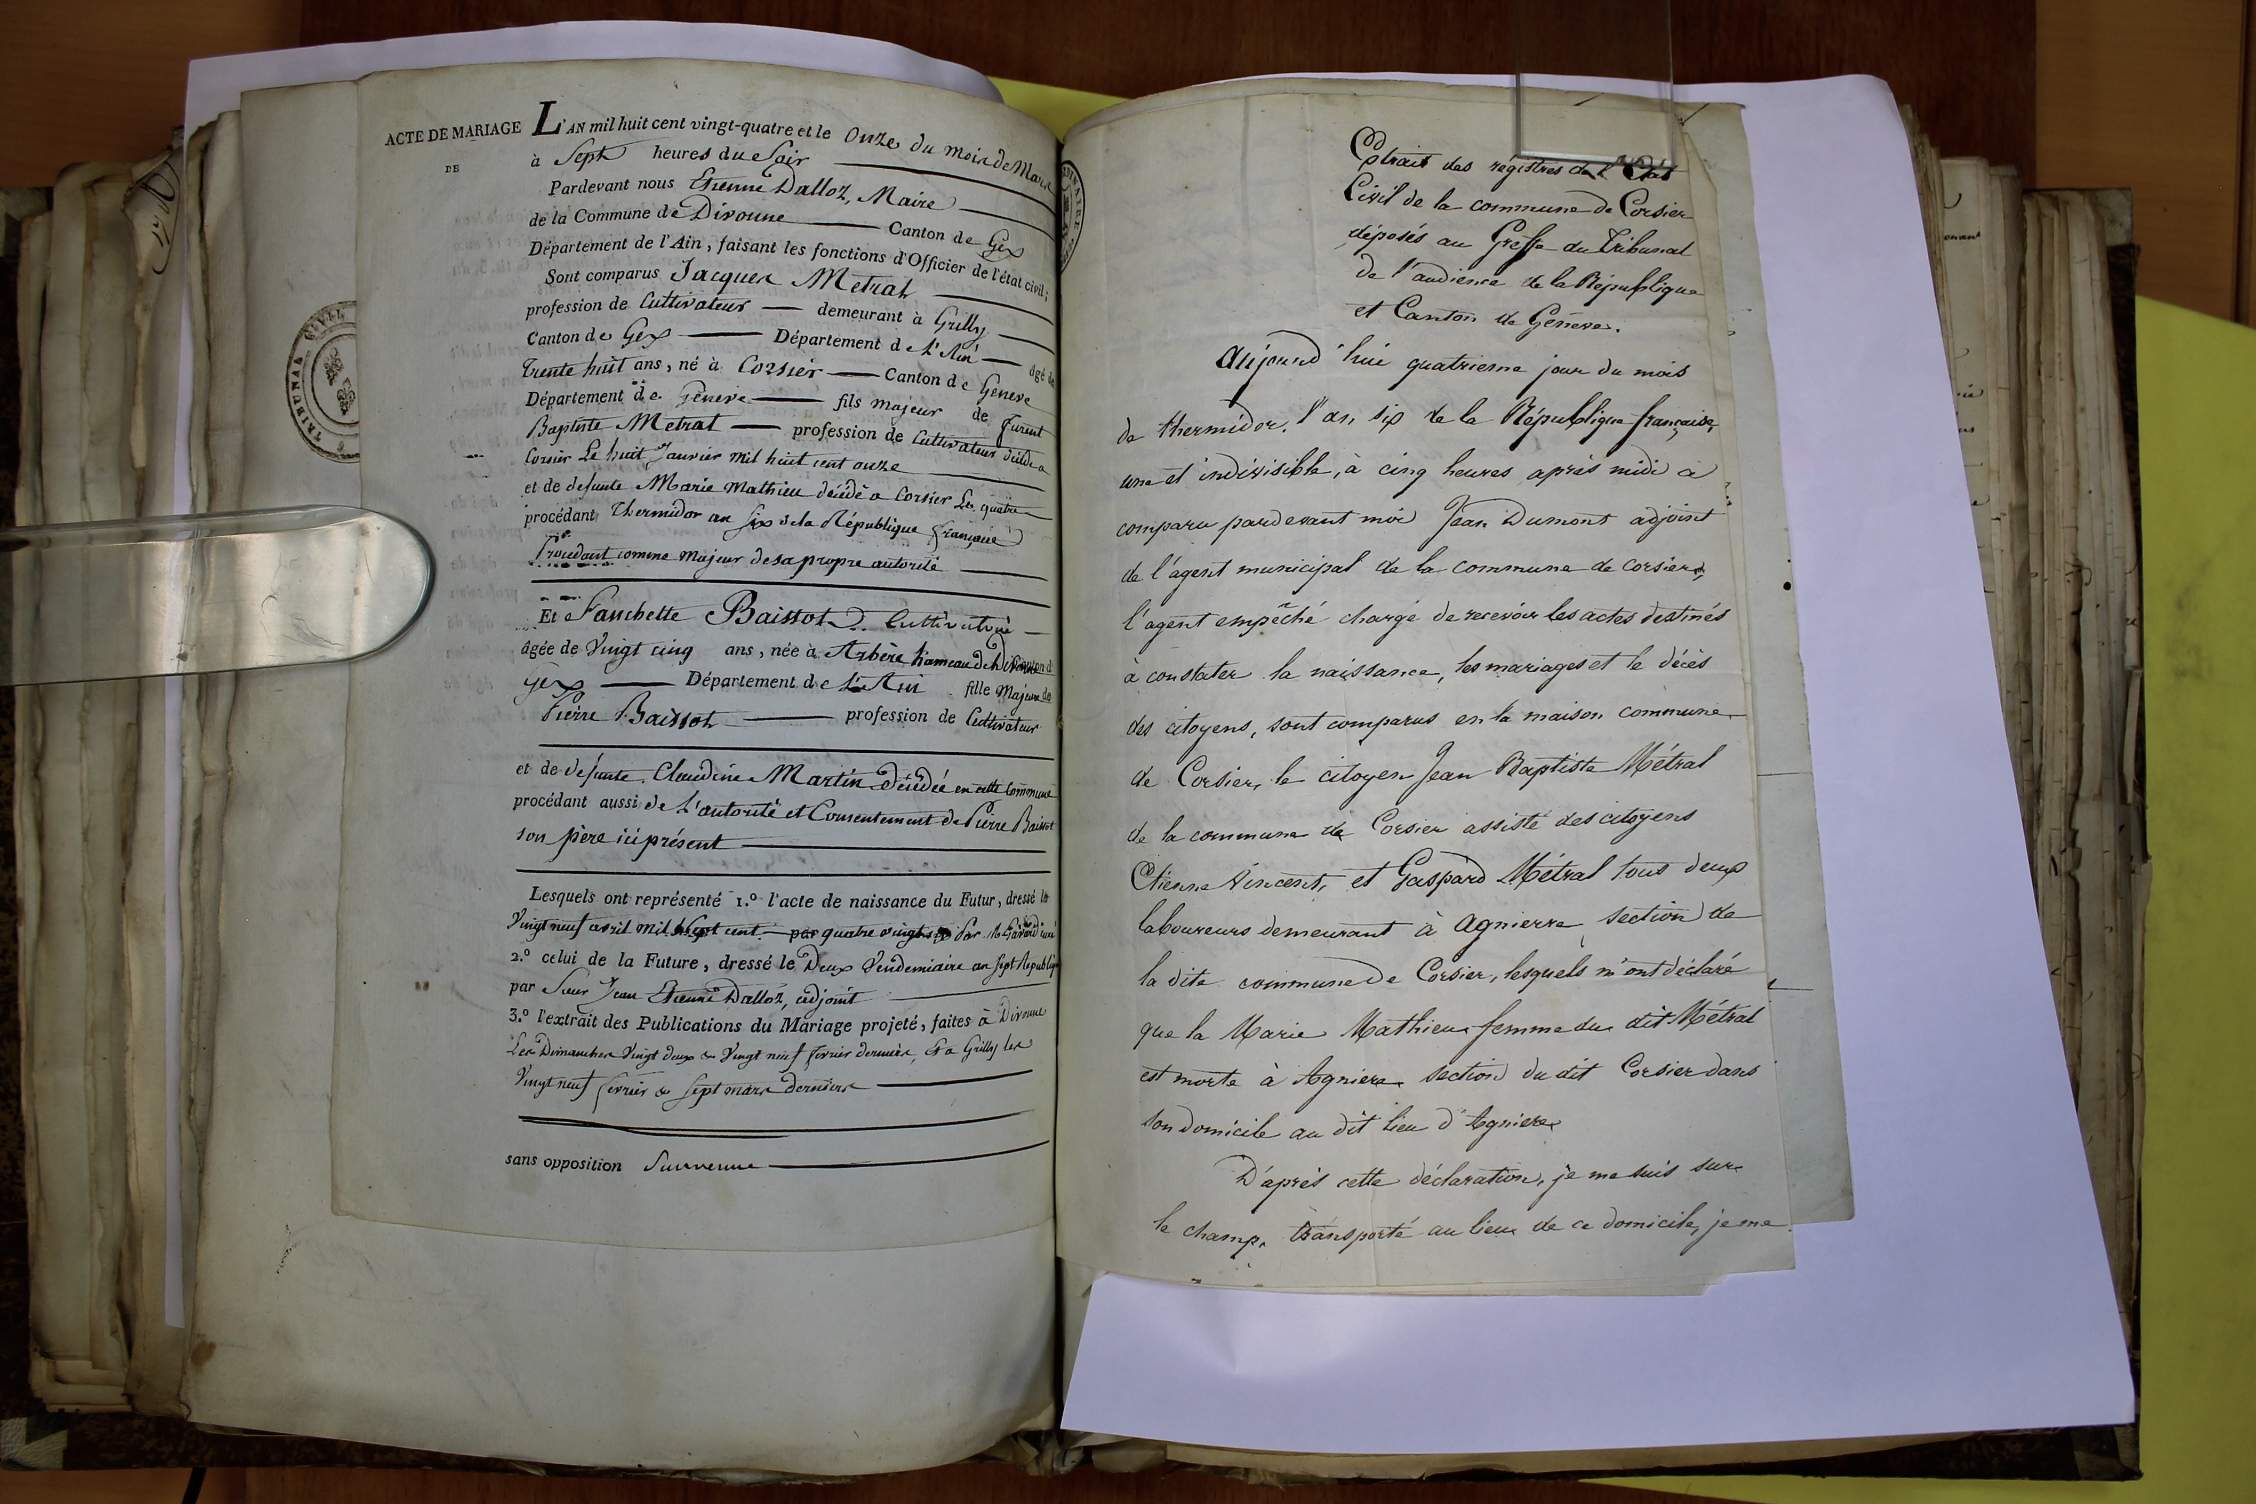 ACTE DE MARIAGE
DE
L'AN mil huit cent vingt-quatre et le Onze du mois de Mars
à Sept heures du Soir
Pardevant nous Etienne Dalloz, Maire
de la Commune de Divonne Canton de Gex
Département de l'Ain, faisant les fonctions d'Officier de l'état civil;
Sont comparus Jacques Metral
profession de Cultivateur demeurant à Grilly
Canton de Gex Département de L'Ain âgé de
Trente huit ans, né à Corsier Canton de Geneve
Département de Géneve fils majeur de
Baptiste Metral profession de Cultivateur décédé a
Corsier Le huit Janvier mil huit cent onze
et de defunte Marie Mathieu décédé a Corsier Le quatre
procédant Thermidor an Six de la République française
Procédant comme majeur de sa propre autorité
Et Fanchette Baissot Cultivatrice
âgée de Vingt cinq ans, née à Arbère hameau de Divonne Canton d
Gex Département de L'Ain fille Majeure de
Pierre Baissot profession de Cultivateur
et de defunte Claudine Martin décédée en cette Commune
procédant aussi de L'autorité et Consentement de Pierre Baissot
son père ici présent
Lesquels ont représenté 1.º l'acte de naissance du Futur, dressé le
Vingt neuf avril mil sept cent quatre vingt six par M Girard curé
2.º celui de la Future, dressé le Deux Vendemiaire an sept Républiq
par Sieur Jean Etienne Dalloz, adjoint
3.º l'extrait des Publications du Mariage projeté, faites à Divonne
Les Dimanches Vingt deux & Vingt neuf fevrier derniers, & a Grilly les
Vingt neuf fevrier & Sept mars derniers
sans opposition Survenue
TRIBUNAL CIVIL
Extrait des régistres de l'Etat
Civil de la commune de Corsier
déposés au Greffe du Tribunal
de l'audience de la République
et Canton de Genève.
Aujourd'hui quatrieme jour du mois
de thermidor, l'an six de la République française,
une et indivisible, à cinq heures après midi a
comparu pardevant moi Jean Dumont adjoint
de l'agent municipal de la commune de Corsier,
l'agent empêché chargé de recevoir les actes destinés
à constater la naissance, les mariages et le décès
des citoyens, sont comparus en la maison commune
de Corsier, le citoyen Jean Baptiste Métral
de la commune de Corsier assisté des citoyens
Etienne Vincent, et Gaspard Métral tous deux
laboureurs demeurant à Agnierre, section de
la dite commune de Corsier, lesquels m'ont déclaré
que la Marie Mathieu femme du dit Métral
est morte à Agniere section du dit Corsier dans
son domicile au dit lieu d'Agniere
D'après cette déclaration, je me suis sur
le champ, transporté au lieu de ce domicile, je me